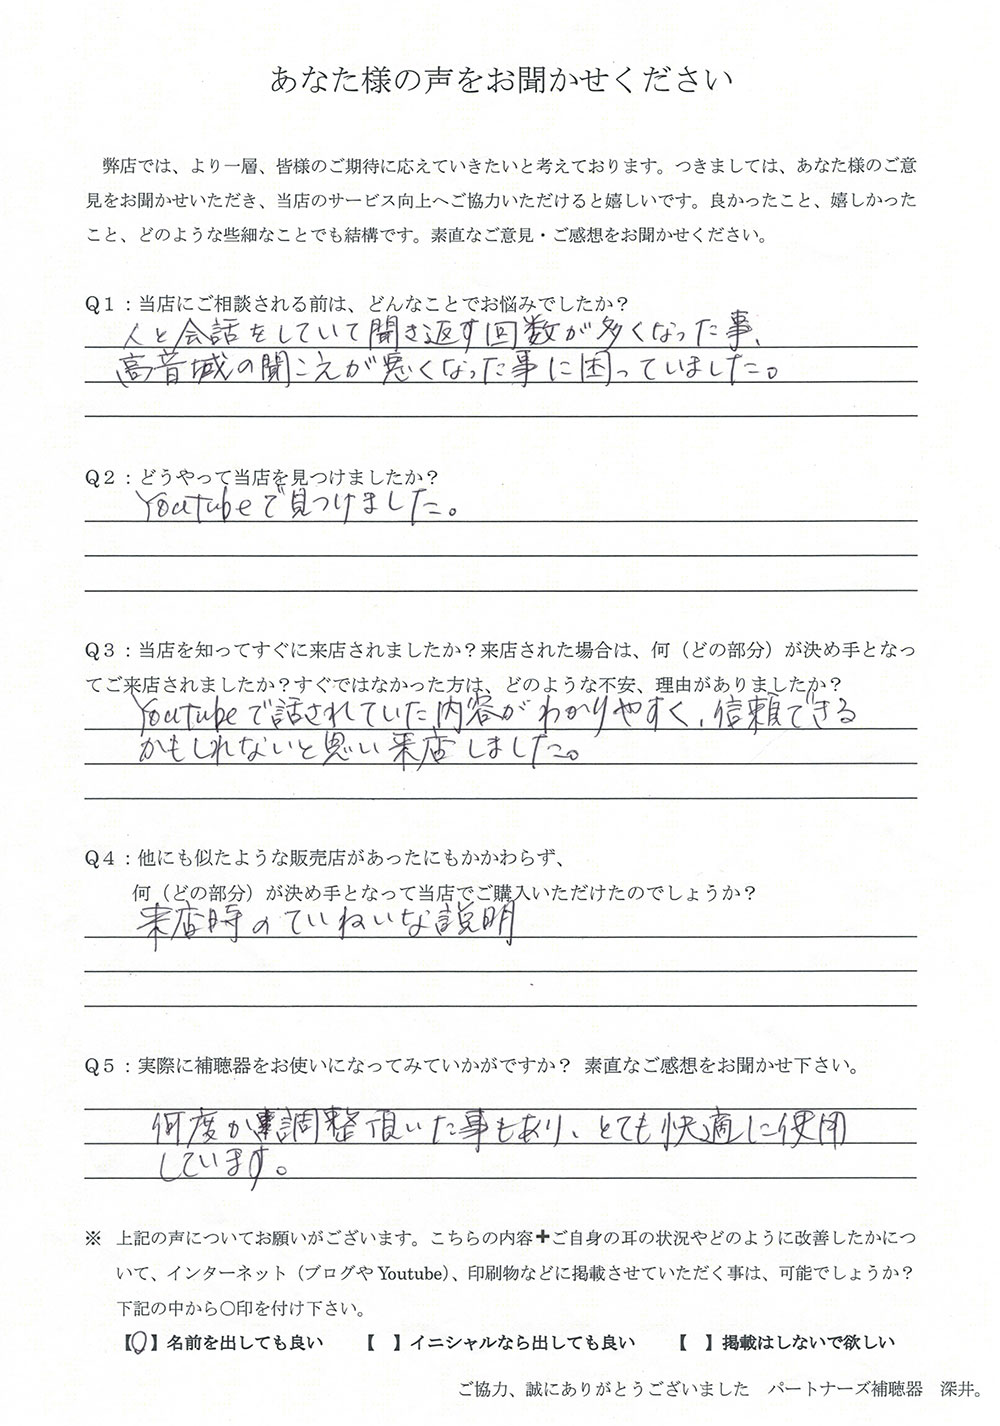 あなた様の声をお聞かせください
弊店では、より一層、皆様のご期待に応えていきたいと考えております。つきましては、あなた様のご意
見をお聞かせいただき、当店のサービス向上へご協力いただけると嬉しいです。良かったこと、嬉しかった
こと、どのような些細なことでも結構です。素直なご意見・ご感想をお聞かせください。
Q1：当店にご相談される前は、どんなことでお悩みでしたか？
人と会話をしていて聞き返す回数が多くなった事、
高音域の聞こえが悪くなった事に困っていました。
Q2：どうやって当店を見つけましたか？
Youtubeで見つけました。
Q3：当店を知ってすぐに来店されましたか？来店された場合は、何（どの部分）が決め手となっ
てご来店されましたか？すぐではなかった方は、どのような不安、理由がありましたか？
Youtubeで話されていた内容がわかりやすく、信頼できる
かもしれないと思い来店しました。
Q4：他にも似たような販売店があったにもかかわらず、
何（どの部分）が決め手となって当店でご購入いただけたのでしょうか？
来店時のていねいな説明
Q5：実際に補聴器をお使いになってみていかがですか？ 素直なご感想をお聞かせ下さい。
何度か調整頂いた事もあり、とても快適に使用
しています。
※ 上記の声についてお願いがございます。こちらの内容＋ご自身の耳の状況やどのように改善したかにつ
いて、インターネット（ブログやYoutube）、印刷物などに掲載させていただく事は、可能でしょうか？
下記の中から〇印を付け下さい。
【〇】名前を出しても良い 【 】イニシャルなら出しても良い 【 】掲載はしないで欲しい
ご協力、誠にありがとうございました パートナーズ補聴器 深井。